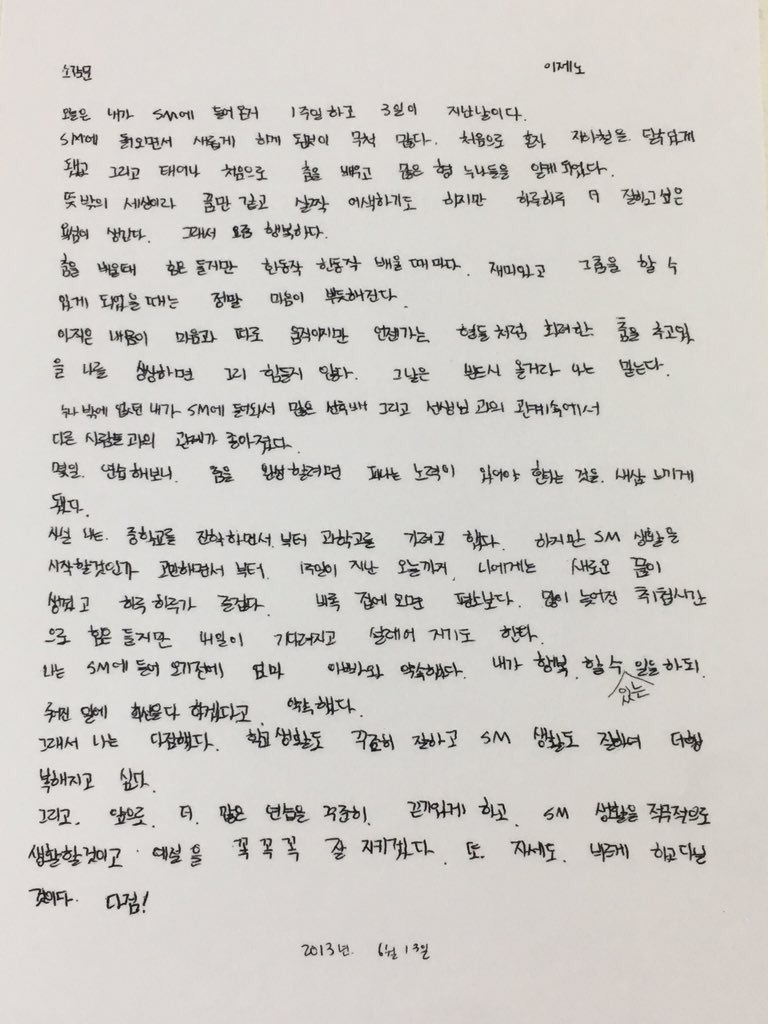 소감문 이제노
오늘은 내가 SM에 들어온지 1주일하고 3일이 지난날이다.
SM에 들어오면서 새롭게 하게 된것이 무척 많다. 처음으로 혼자 지하철을 탈수있게
됐고 그리고 태어나 처음으로 춤을 배우고 많은 형 누나들을 알게 되었다.
뜻밖의 세상이라 꿈만 같고 살짝 어색하기도 하지만 하루하루 더 잘하고싶은
욕심이 생긴다. 그래서 요즘 행복하다.
춤을 배울때 힘은 들지만 한동작 한동작 배울때마다 재미있고 그춤을 할 수
있게 되었을때는 정말 마음이 뿌듯해진다.
아직은 내몸이 마음과 따로 움직이지만 언젠가는 형들처럼 화려한 춤을 추고있
을 나를 상상하면 그리 힘들지 않다. 그날은 반드시 올거라 나는 믿는다.
누나밖에 없던 내가 SM에 들어와서 많은 선후배 그리고 선생님과의 관계속에서
다른 사람들과의 관계가 좋아졌다.
몇일 연습해보니 춤을 완성할려면 피나는 노력이 있어야 한다는 것을 새삼 느끼게
됐다.
사실 나는 중학교를 진학하면서부터 과학고를 가려고 했다. 하지만 SM 생활을
시작할것인가 고민하면서부터 13일이 지난 오늘까지 나에게는 새로운 꿈이
생겼고 하루하루가 즐겁다. 비록 집에오면 평소보다 많이 늦어진 취침시간
으로 힘은 들지만 내일이 기다려지고 설레어 지기도 한다.
나는 SM에 들어 오기전에 엄마 아빠와 약속했다. 내가 행복 할 수 있는 일을 하되
주어진 일에 최선을다 하겠다고 약속했다.
그래서 나는 다짐했다. 학교생활도 꾸준히 잘하고 SM 생활도 잘하여 더행
복해지고 싶다.
그리고 앞으로 더 많은 연습을 꾸준히 끈기있게 하고 SM 생활을 적극적으로
생활할것이고 예절을 꼭 꼭 꼭 잘 지키겠다. 또 자세도 바르게 하고다닐
것이다. 다짐!
2013년 6월 13일